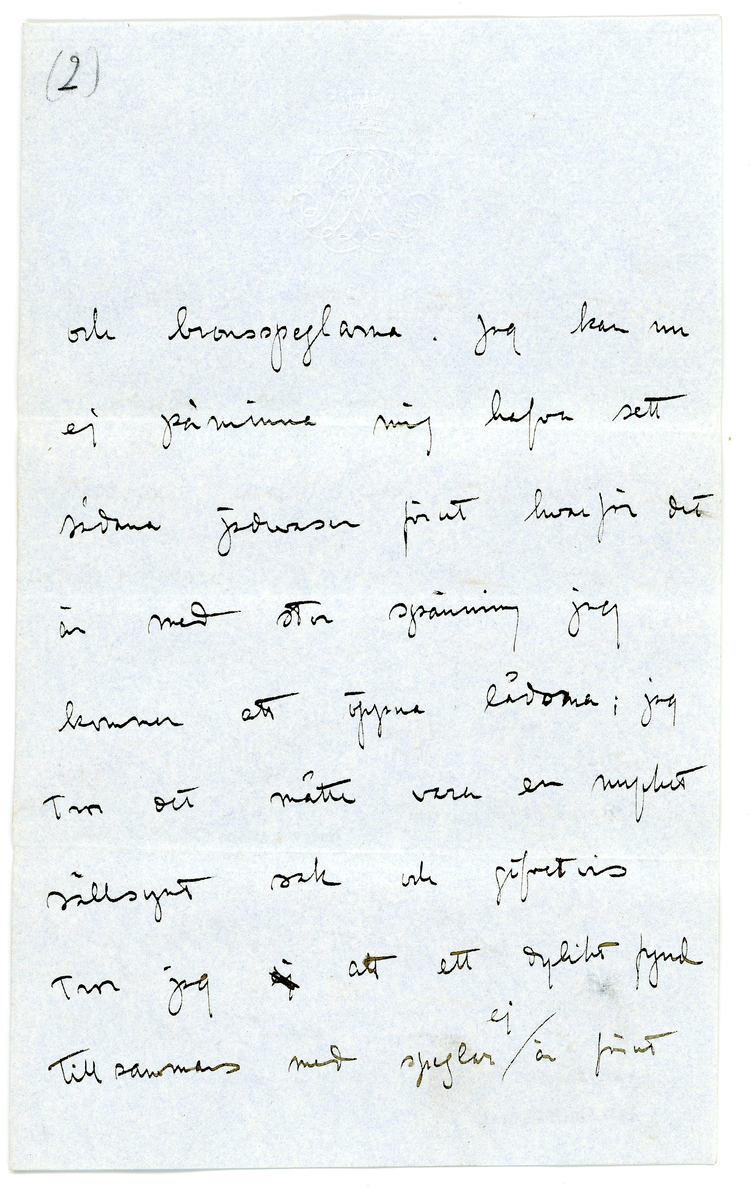 (2)
och bronsspeglarna. Jag kan nu
ej påminna mig hafva sett
sådana jadevaser förut hvarför det
är med stor spänning jag
kommer att öppna lådorna; jag
tror det måtte vara en mycket
sällsynt sak och gifvetvis
tror jag ej att ett dylikt fynd
tillsammans med speglar ej är förut